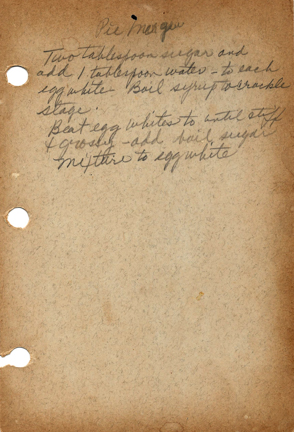 Pie Meringu
Two tablespoon sugar and
add 1 tablespoon water - to each
egg white - Boil syrup to crackle
stage.
Beat egg whites to until stiff
& grossy - add boil sugar
mixture to egg white